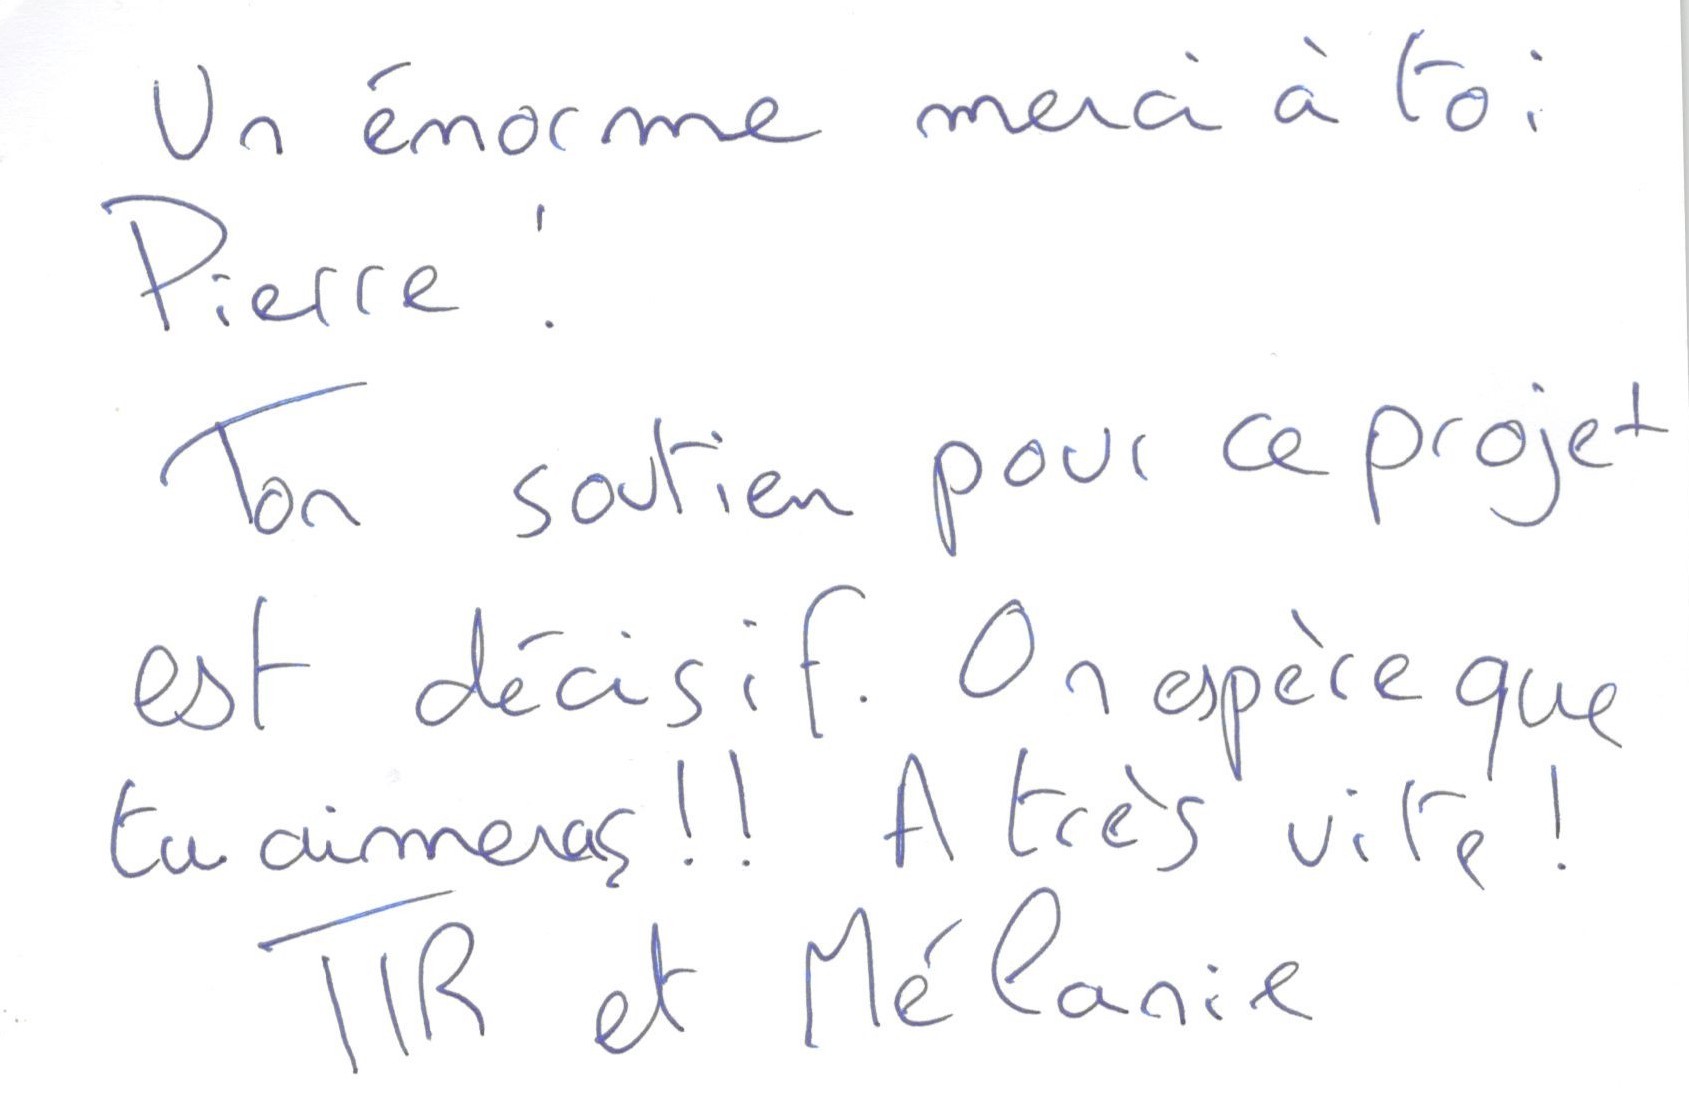 Un énorme merci à toi
Pierre !
Ton soutien pour ce projet
est décisif. On espère que
tu aimeras !! A très vite !
TIR et Mélanie